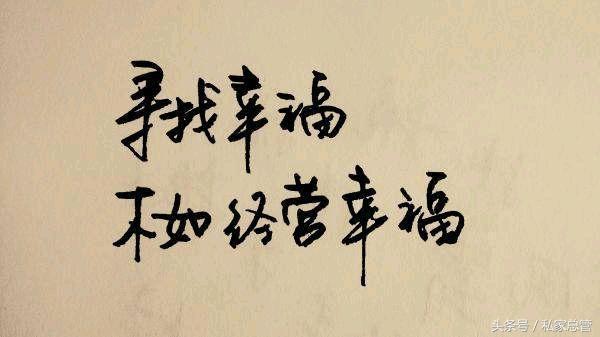 寻找幸福
不如经营幸福
头条号/私家总管